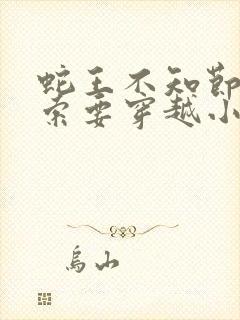 蛇王不知节
索要穿越小
乌山